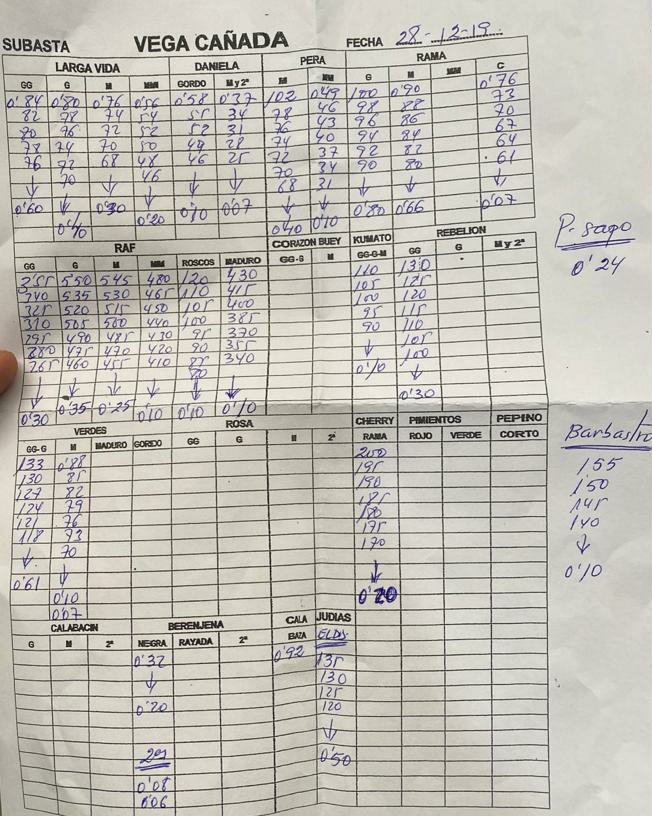 SUBASTA VEGA CAÑADA FECHA 28-12-19
LARGA VIDA DANIELA PERA RAMA
GG G M MM GORDO M y 2ª M MM G M MM C
0'84 0'80 0'76 0'56 0'58 0'37 102 0'49 100 0'90 0'76
82 78 74 54 55 34 78 46 98 88 73
80 76 72 52 52 31 76 43 96 86 70
78 74 70 50 49 28 74 40 94 84 67
76 72 68 48 46 25 72 37 92 82 64
↓ 70 ↓ 46 ↓ ↓ 70 34 90 80 61
68 31
0'60 0'40 0'30 0'20 0'10 0'07 0'40 0'10 0'80 0'66 0'07
P. sapo
0'24
RAF CORAZON BUEY KUMATO REBELION
GG G M MM ROSCOS MADURO GG-G M GG-G-M GG G M y 2ª
355 550 545 480 120 430 110 130
340 535 530 465 110 415 105 125
325 520 515 450 105 400 100 120
310 505 500 440 100 385 95 115
295 490 485 430 95 370 90 110
280 475 470 420 90 355 ↓ 105
265 460 455 410 85 340 0'10 100
↓ ↓ ↓ ↓ 80 ↓ ↓
0'30 0'35 0'25 0'10 0'10 0'10 0'30
VERDES ROSA CHERRY PIMIENTOS PEPINO
GG-G M MADURO GORDO GG G M 2ª RAMA ROJO VERDE CORTO
133 0'88 200
130 85 195
127 82 190
124 79 185
121 76 180
118 73 175
↓ 70 170
0'61 ↓ ↓
0'10 0'20
0'07
Barbastro
155
150
145
140
↓
0'10
CALABACIN BERENJENA CALA JUDIAS
G M 2ª NEGRA RAYADA 2ª BAZA ELDS.
0'32 0'92 135
↓ 130
125
0'20 120
↓
2ª 0'50
0'08
0'06